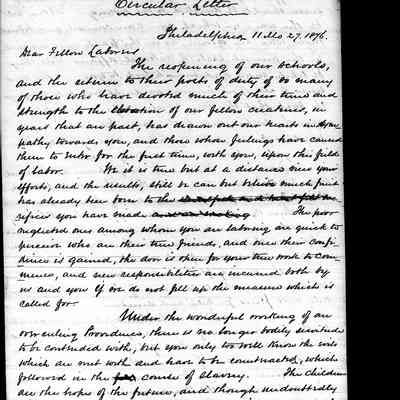 Circular Letter
Philadelphia 11 Mo 27. 1876.
Dear Fellow Laborers
The reopening of our schools,
and the return to their posts of duty of so many
of those who have devoted much of their time and
strength to the elevation of our fellow creatures, in
years that are past, has drawn out our hearts in sym-
pathy towards you, and those whose feelings have caused
them to enter for the first time, with you, upon this field
of labor. We it is true but at a distance view your
efforts, and the results, still we can but believe much fruit
has already been born to the
you have made
The poor
neglected ones among whom you are laboring are quick to
perceive who are their true friend, and once their confi-
dence is gained, the door is open for your true work to com-
mence, and new responsibilities are incurred both by
us and you if we do not fill up the measure which is
called for.
Under the wonderful working of an
overruling Providence, there is no longer bodily servitude
to be contended with, but you only too well know the evils
which are met with and have to be counteracted, which
followed in the course of slavery. The children
are the hope of the future, and though undoubtedly